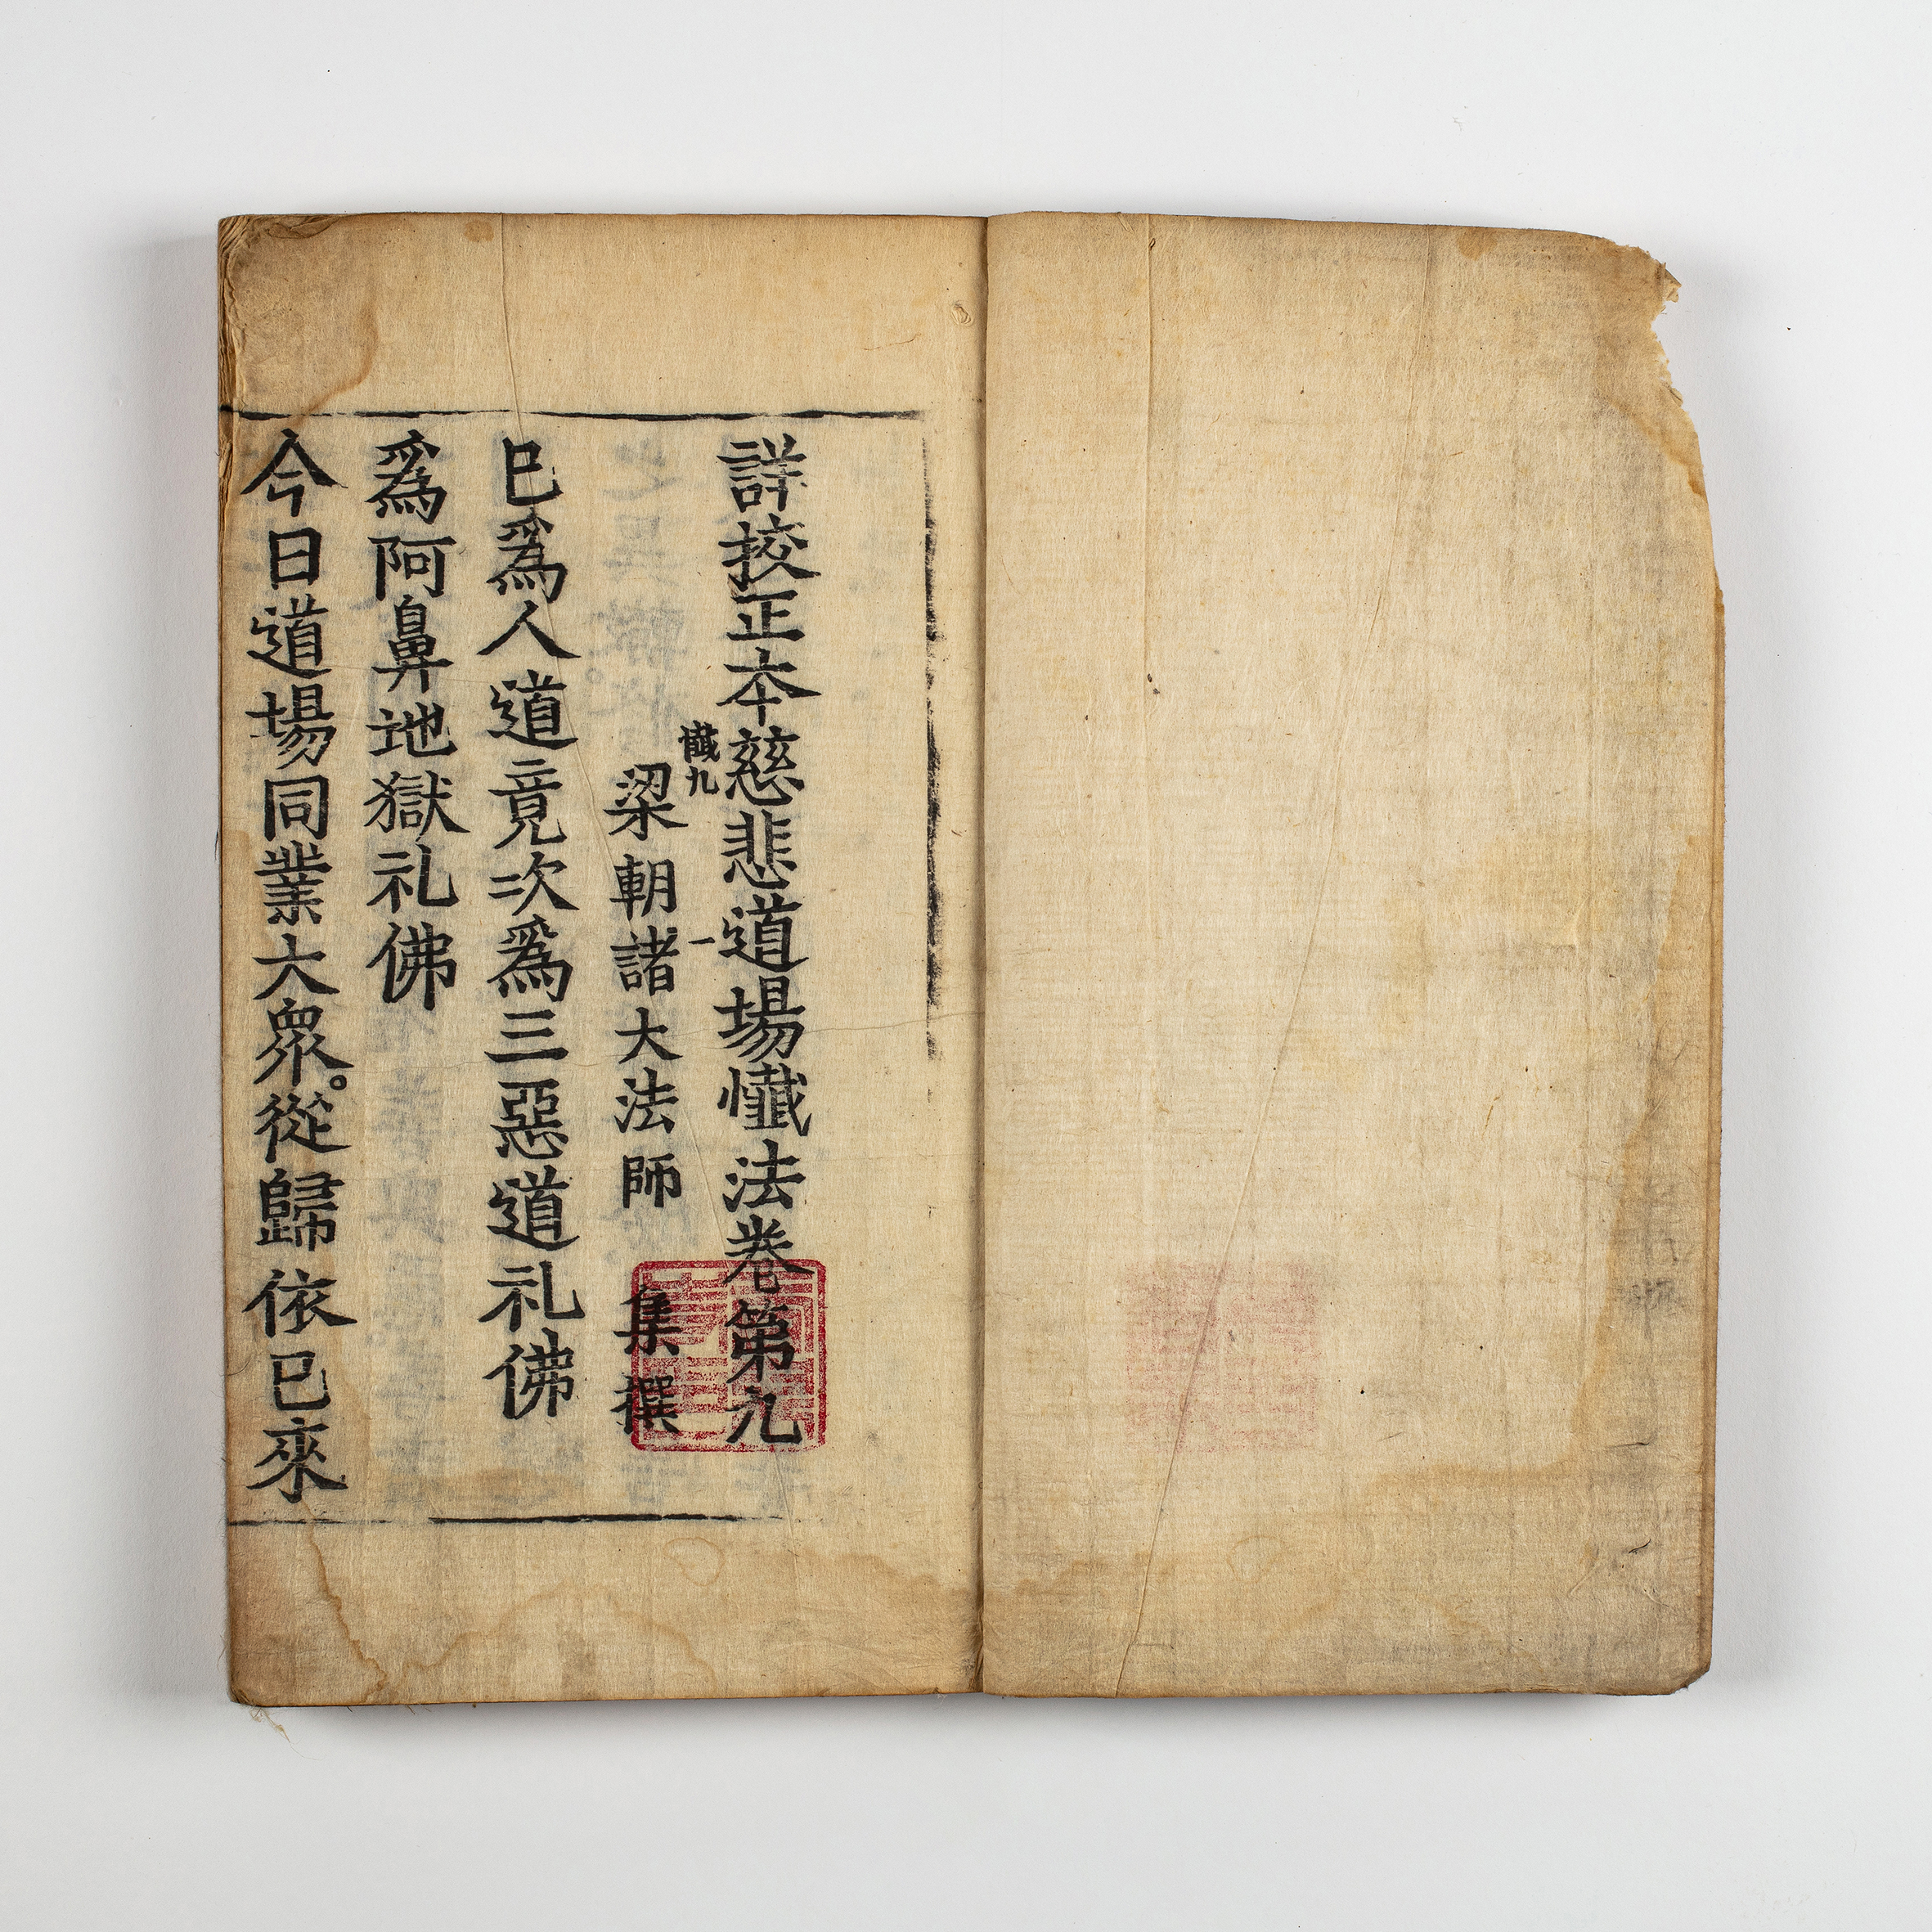 詳挍正本慈悲道場懺法卷第九
懺九
一
梁朝諸大法師 集撰
已爲人道竟次爲三惡道礼佛
爲阿鼻地獄礼佛
今日道場同業大衆。從歸依已來